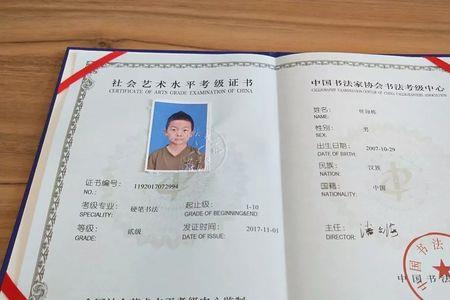 社会艺术水平考级证书
CERTIFICATE OF ARTS GRADE EXAMINATION OF CHINA
证书编号 1192017072994
NO.:
考级专业 硬笔书法 起止级 1-10
SPECIALITY: GRADE OF BEGINNING&END:
等级 贰级 发证时间 2017-11-01
GRADE: DATE OF ISSUE:
中国书法家协会书法考级中心
姓名:
NAME:
性别: 男
SEX:
出生日期: 2007-10-29
DATE OF BIRTH:
民族: 汉族
NATIONALITY:
国籍: 中国
NATIONALITY:
主任:
DIRECTOR:
中国书法